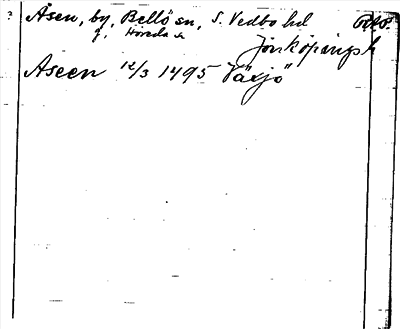 ? Åsen, by, Bellö sn, S. Vedbo hd
g. Höreda sn
Jönköpings l.
Aseen 12/3 1495 Växjö